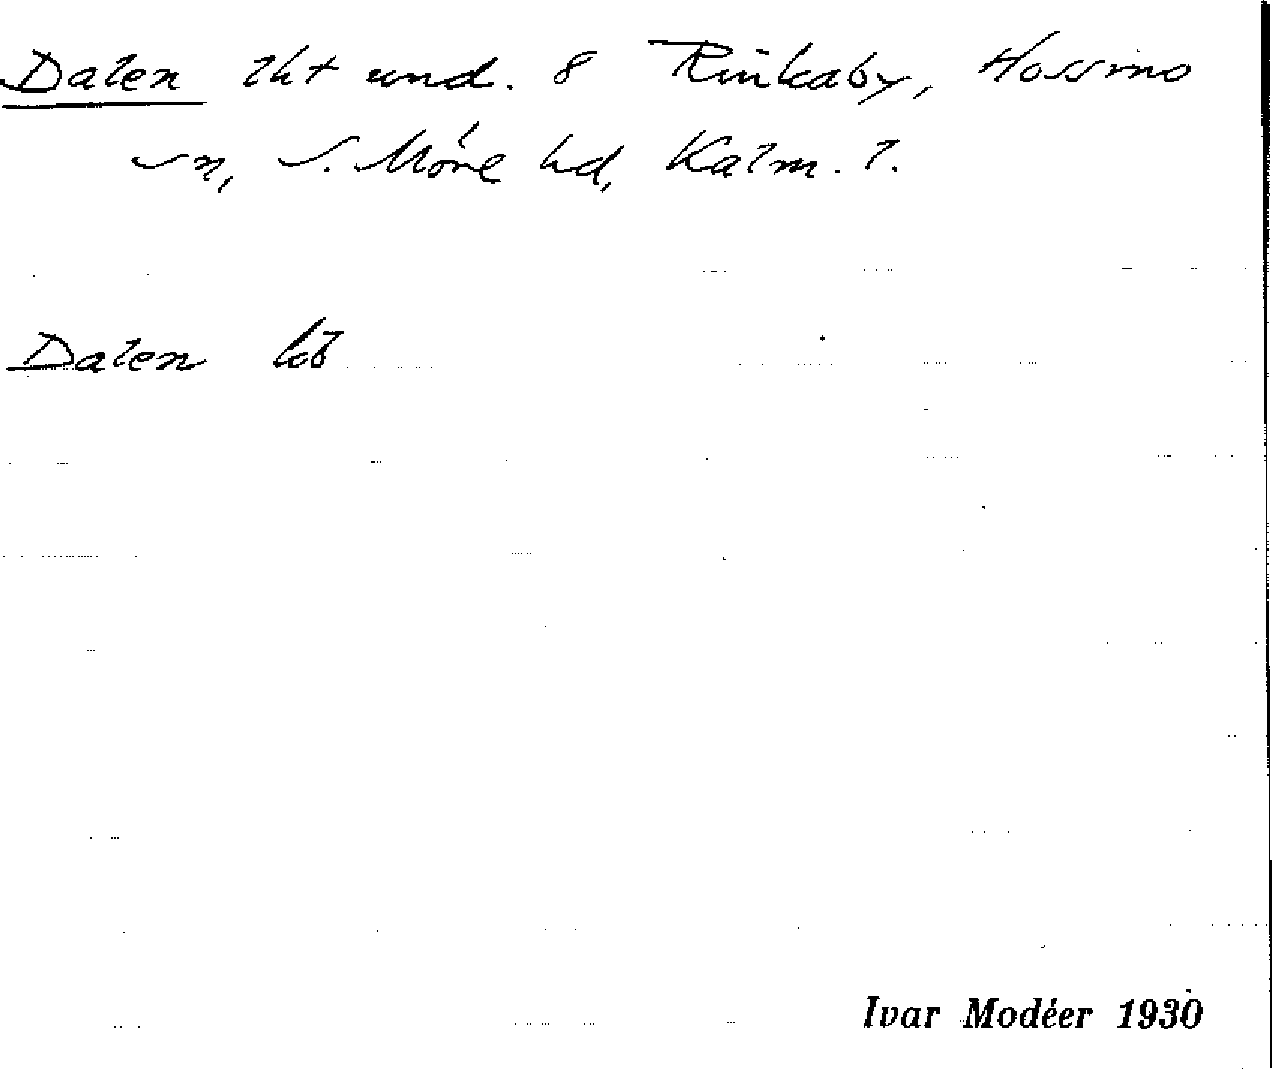 Dalen lht und. 8 Rinkaby, Hossmo
sn, S. Möre hd, Kalm. l.
Dalen
Ivar Modéer 1930